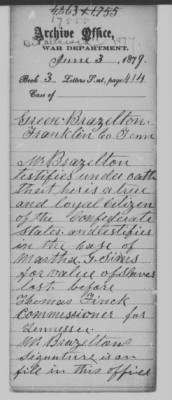 4263 & 1755
17555
Archive Office,
WAR DEPARTMENT,
June 3, 1879.
Book 3. Letters Sent, page 414
Case of
Green Brazelton
Franklin Co Tenn
Mr Brazelton
testifies under oath
that he is a true
and loyal citizen
of the Confederate
States and testifies
in the case of
Martha G. Sims
for value of slaves
lost before
Thomas Finck
Commissioner for
Tennessee.
Mr Brazeltons
signature is on
file in this office